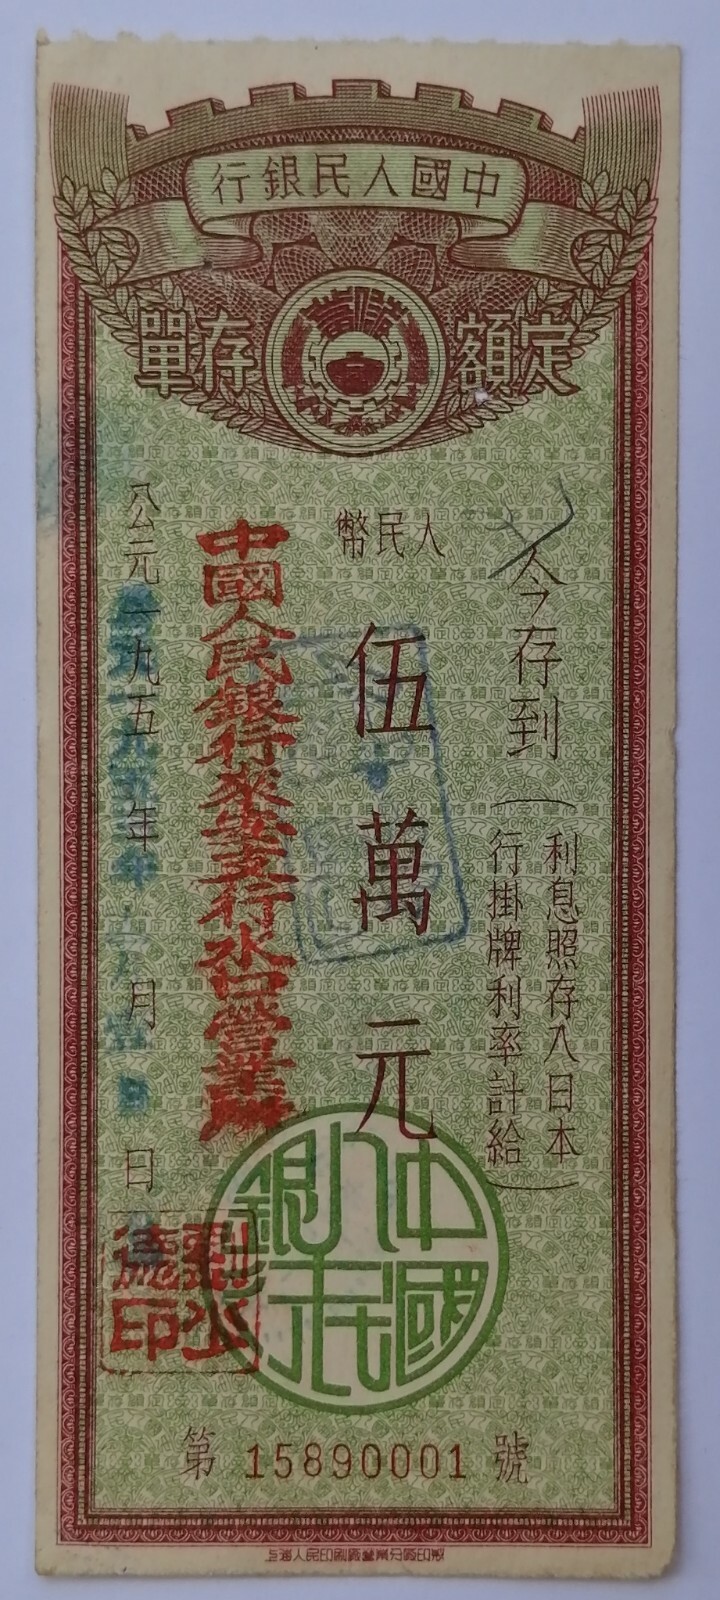 中國人民銀行
定額存單
今存到
(利息照存入日本
行掛牌利率計給)
人民幣
伍萬元
中國人民銀行來安支行水口營業所
公元一九五 年 月 日
中國人民銀行
劉少
德印
第 15890001 號
上海人民印刷廠營業分廠印製